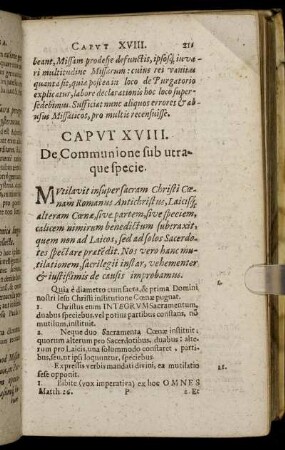 CAPVT XVIII. 211
beant, Missam prodesse defunctis, ipsosq́; iuva-
ri multitudine Missarum: cuius rei vanitas
quanta sit, quia postea in loco de Purgatorio
explicatur, labore declarationis hoc loco super-
sedebimus. Sufficiat nunc aliquos errores & ab-
usus Missaticos, pro multis recensuisse.
CAPVT XVIII.
De Communione sub utra-
que specie.
MVtilavit insuper sacram Christi Cœ-
nam Romanus Antichristus, Laicisq́;
alteram Cœnæ, sive partem, sive speciem,
calicem nimirum benedictum subtraxit,
quem non ad Laicos, sed ad solos Sacerdo-
tes spectare prætendit. Nos verò hanc mu-
tilationem, sacrilegii instar, vehementer
& iustissimis de causis improbamus.
Quia è diametro cum sacra, & prima Domini
nostri Iesu Christi institutione Cœnæ pugnat.
1. Christus enim INTEGRVM Sacramentum,
duabus speciebus, vel potius partibus constans, nō
mutilum, instituit.
2. Neque duo Sacramenta Cœnæ instituit:
quorum alterum pro Sacerdotibus, duabus: alte-
rum pro Laicis, una solummodo constaret, parti-
bus, seu, ut ipsi loquuntur, speciebus.
Expressis verbis mandati divini, ea mutilatio
sese opponit. 21.
1. Bibite (vox imperativa) ex hoc OMNES
Matth. 26. P 2. Et